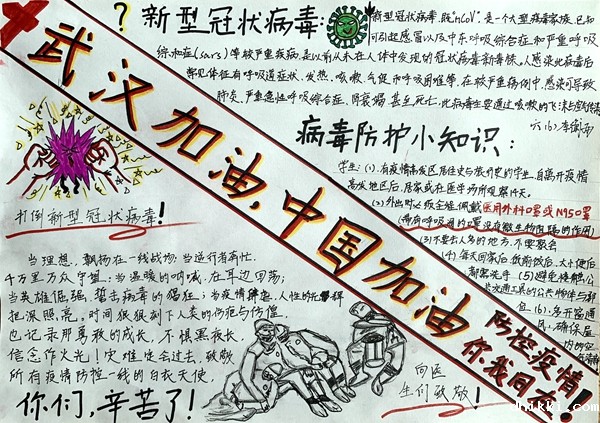 ?新型冠状病毒:
新型冠状病毒 既"nCoV".是一个大型病毒家族,已知
可引起感冒以及中东呼吸综合症和严重呼吸
综合症(sars)等较严重疾病,是以前从未在人体中发现的冠状病毒新毒株,人感染此病毒后
常见体征有呼吸道症状、发热、咳嗽、气促和呼吸困难等,在较严重病例中,感染可导致
肺炎、严重急性呼吸综合症、肾衰竭、甚至死亡,此病毒主要通过咳嗽的飞沫与密切传染
六(6)
武汉加油,中国加油
防控疫情
你我同在!
打倒新型冠状病毒!
病毒防护小知识:
学生:(1).有疫情高发区居住史与旅行史的学生,自离开疫情
高发地区后,居家或在医学场所观察14天。
(2).外出时必须全程佩戴医用外科口罩或N95口罩
(带有呼吸阀的口罩没有微生物阻隔的作用)
(3)不要去人多的地方,不要聚会
(4).每天回家后,饭前饭后,大小便后
都需洗手
(5)避免接触公
共交通工具的公共物体与部
位(6).多开窗通
风,确保屋
内的空
当理想,飘扬在一线战场;当逆行者奔忙,
千万里万众守望;当温暖的呐喊,在耳边回荡;
当英雄倔强,誓击病毒的猖狂;当疫情肆虐,人性的光辉
把深照亮。时间抹刻下人类的伤疤与伤惶,
也记录那勇敢的成长,不惧黑夜长,
信念作火光!灾难定会过去,致敬
所有疫情防控一线的白衣天使,
你们,辛苦了!
向医
生们致敬!
nikki.com